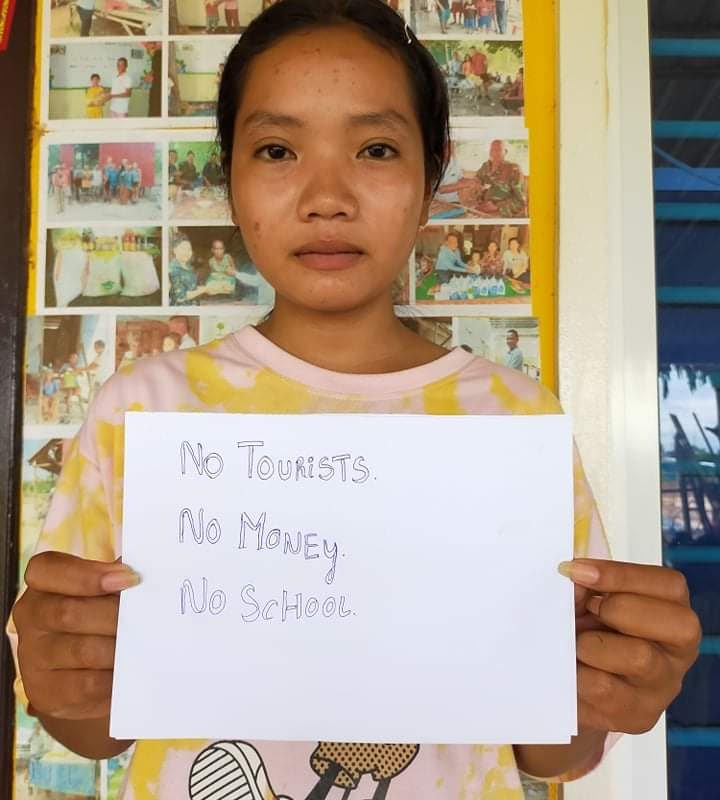 No TOURISTS.
No MONEY.
No SCHOOL.